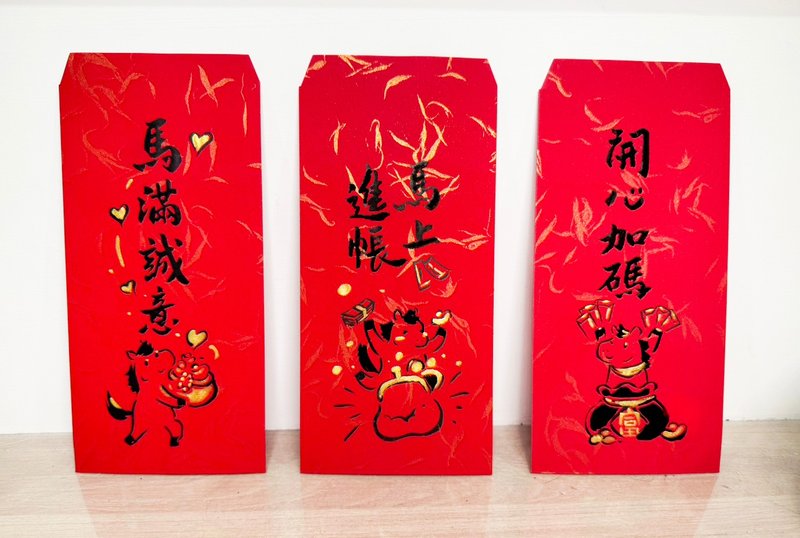 馬滿誠意
馬上
進帳
開心加碼
富